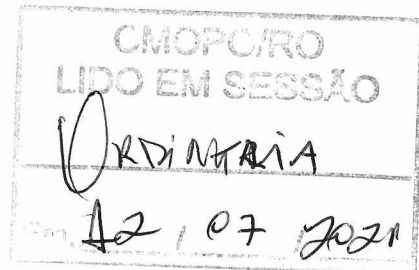 CMOPO/RO
LIDO EM SESSÃO
ORDINÁRIA
Em, 12 / 07 / 2021